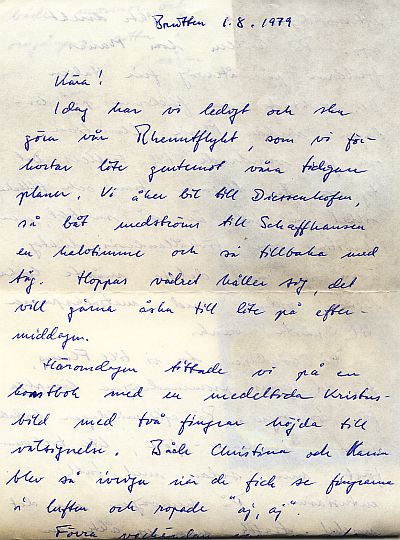 Brütten 1.8.1979
Kära!
Idag har vi ledigt och ska
göra vår Rhenutflykt, som vi för-
kortar lite gentemot våra tidigare
planer. Vi åker bil till Diessenhofen,
så båt medströms till Schaffhausen
en halvtimme och så tillbaka med
tåg. Hoppas vädret håller sig, det
vill gärna åska till lite på efter-
middagen.
Häromdagen tittade vi på en
konstbok med en medeltida Kristus-
bild med två fingrar höjda till
välsignelse. Både Christina och Karin
blev så ivriga när de fick se fingrarna
i luften och ropade "aj, aj".
Förra